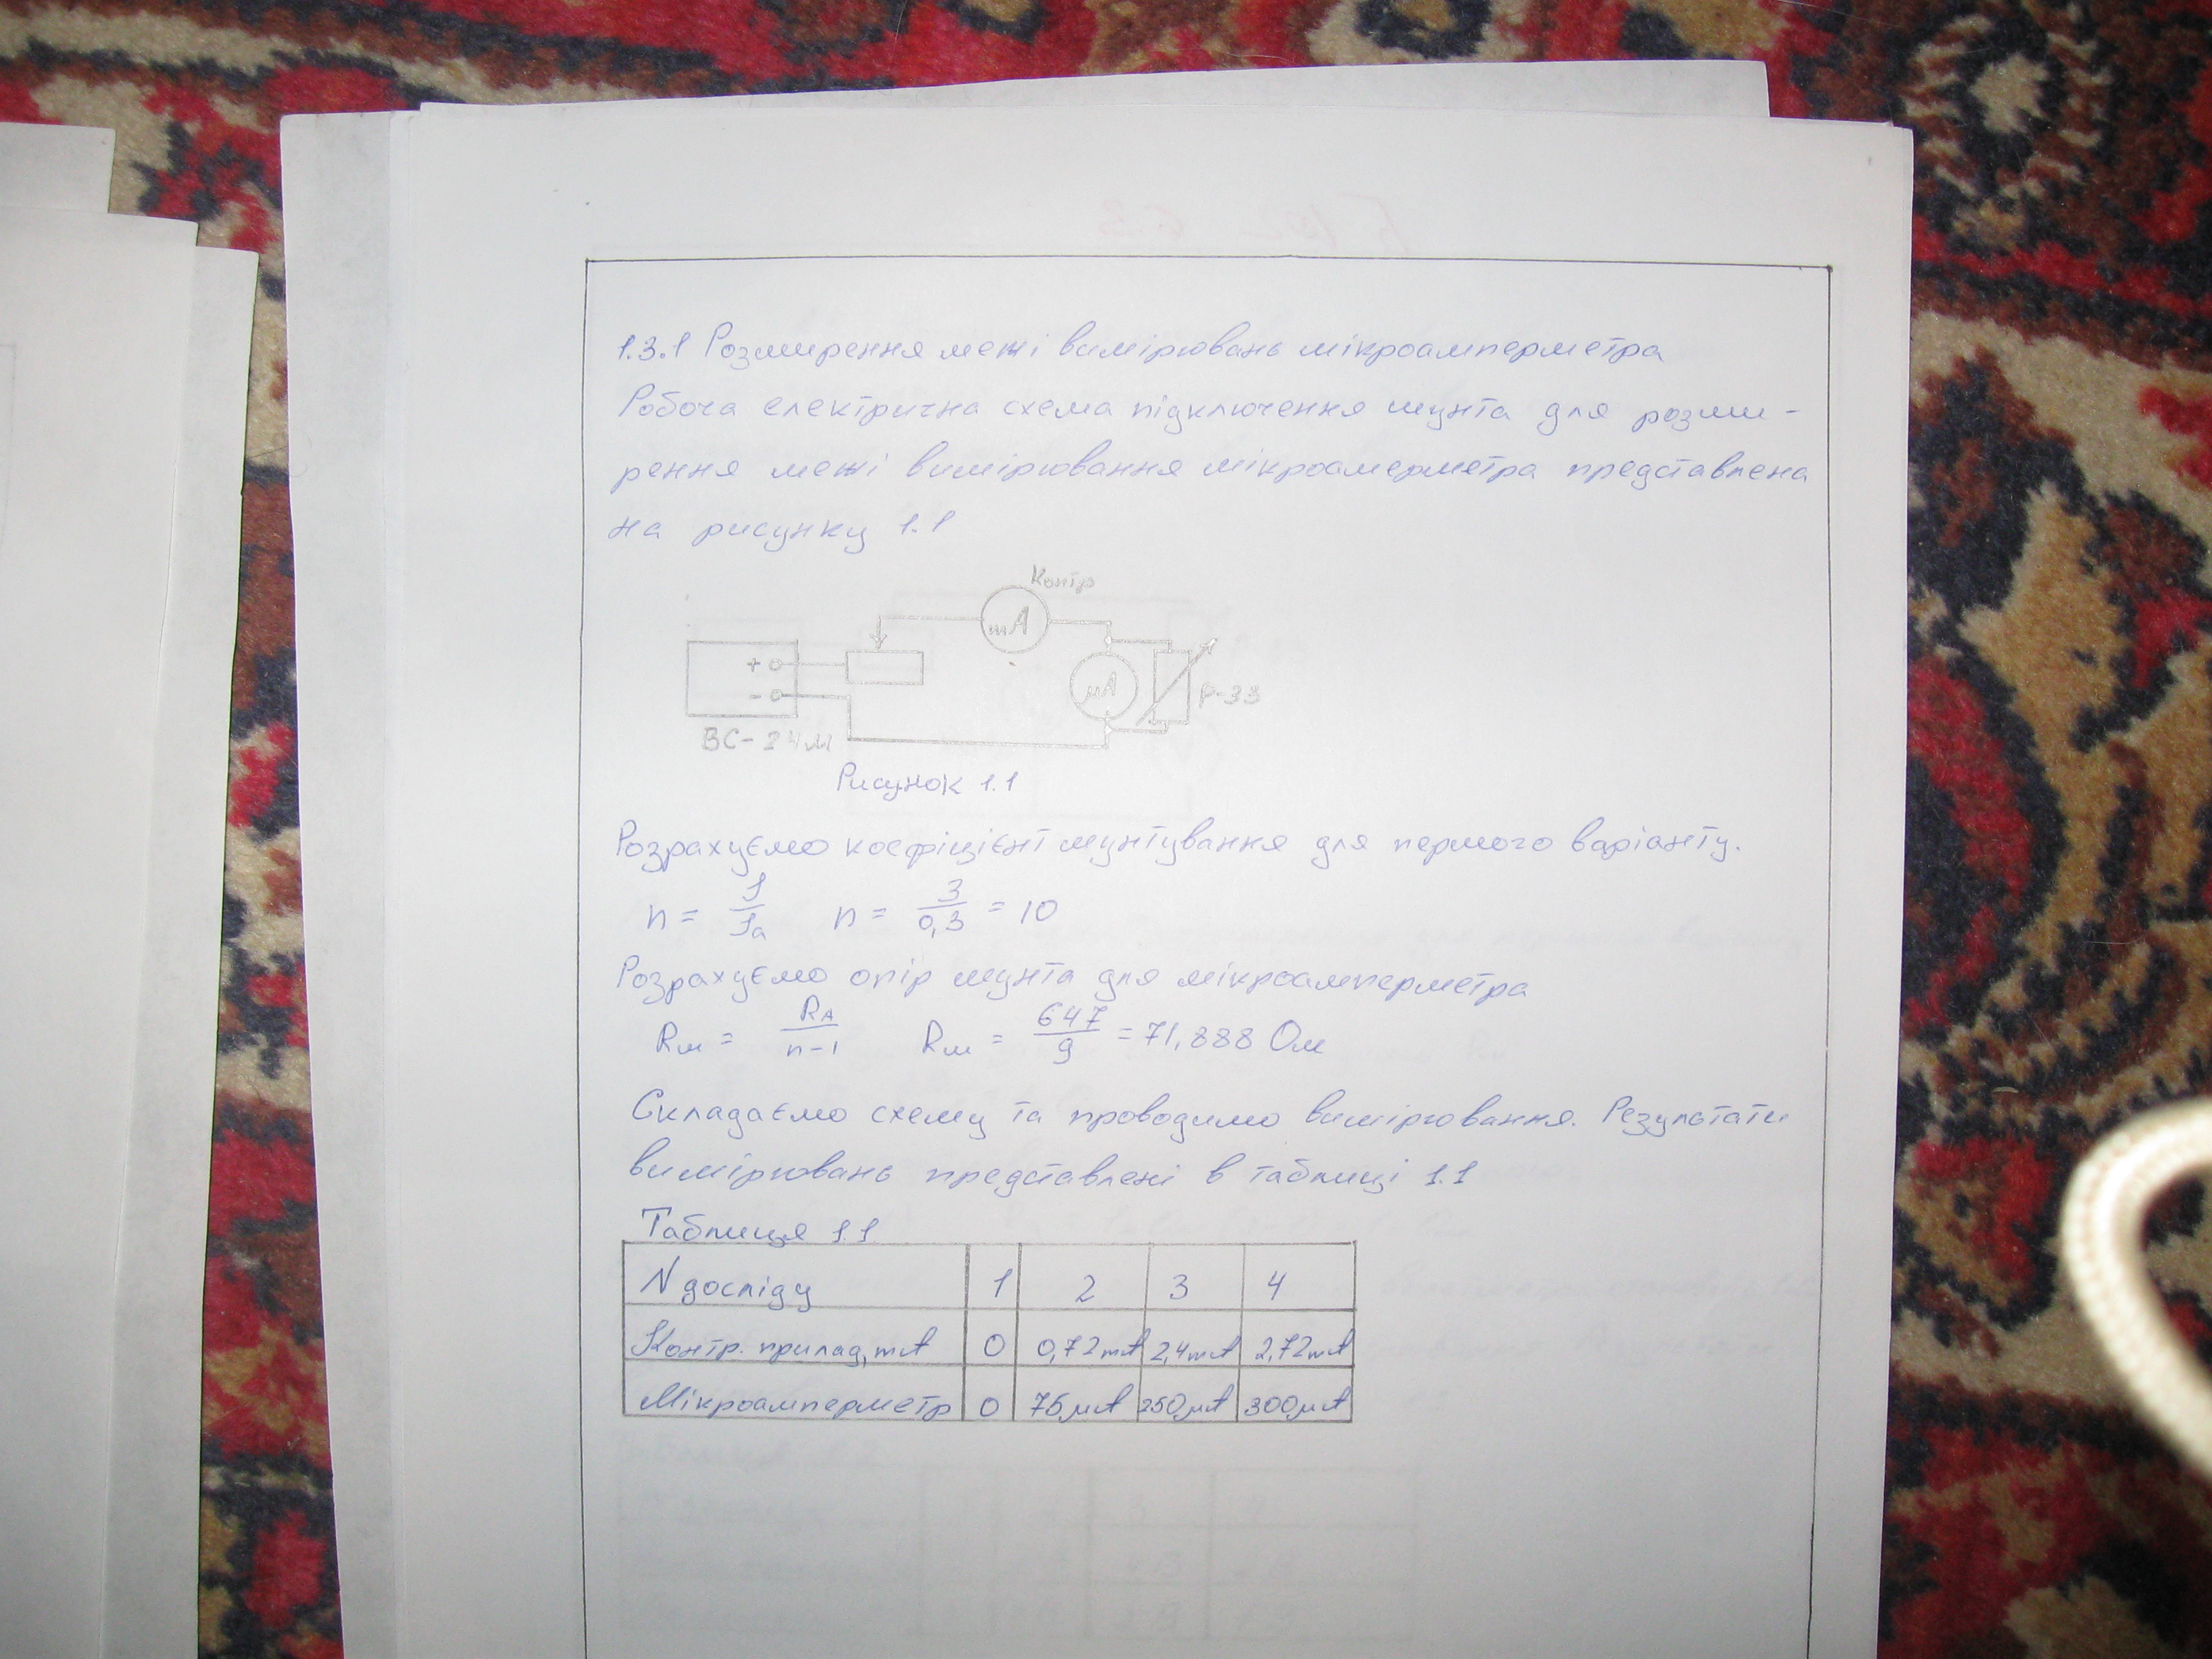 1.3.1 Розширення межі вимірювань мікроамперметра
Робоча електрична схема підключення шунта для розши-
рення межі вимірювання мікроамерметра представлена
на рисунку 1.1
Контр
mA
+
-
μA
P-33
ВС-24М
Рисунок 1.1
Розрахуємо коефіцієнт шунтування для першого варіанту.
n = I/Iа n = 3/0,3 = 10
Розрахуємо опір шунта для мікроамперметра
Rш = RA/n-1 Rш = 647/9 = 71,888 Ом
Складаємо схему та проводимо вимірювання. Результати
вимірювань представлені в таблиці 1.1
Таблиця 1.1
N досліду 1 2 3 4
Контр. прилад, mA 0 0,72mA 2,4mA 2,72mA
Мікроамперметр 0 75μA 250μA 300μA